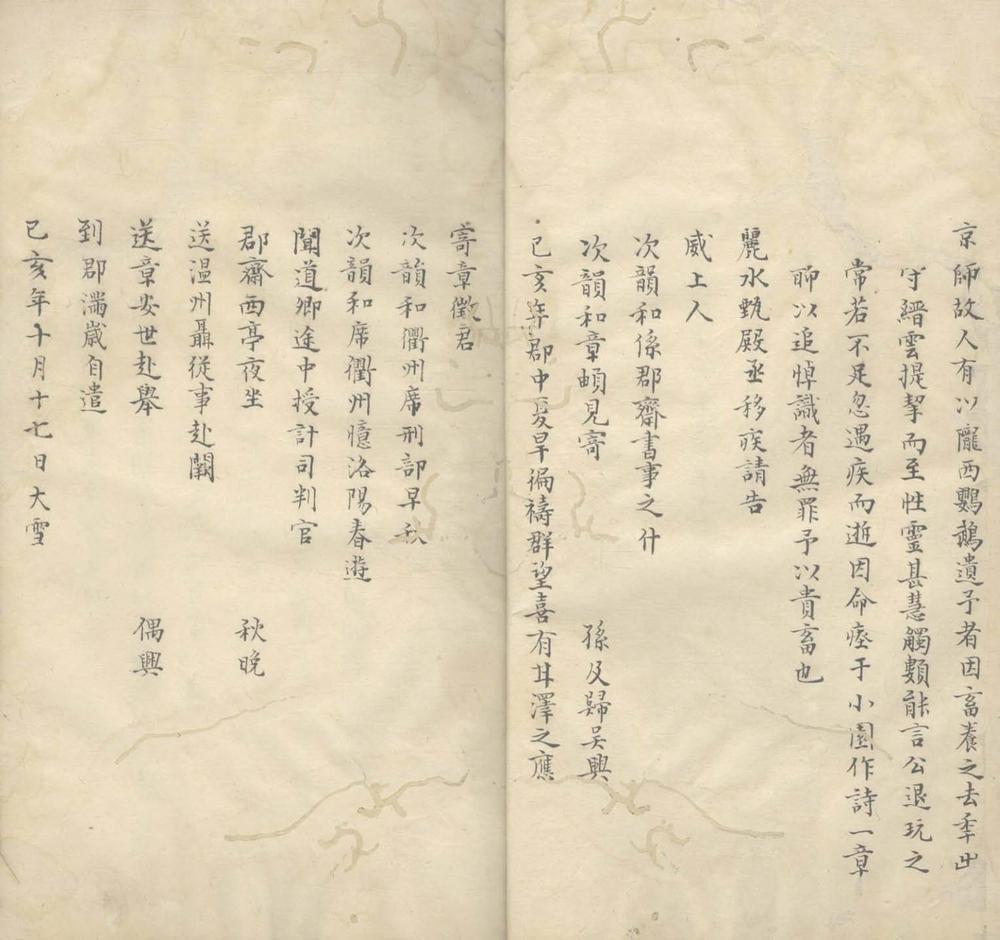 京師故人有以隴西鸚鵡遺予者因畜養之去秊出
守縉雲提挈而至性靈甚慧觸類能言公退玩之
常若不足忽遇疾而逝因命瘞于小園作詩一章
聊以追悼識者無罪予以貴畜也
麗水甄殿丞移疾請告
威上人
次韻和係郡齋書事之什
次韻和章頔見寄 孫及歸吴興
已亥年郡中夏旱徧禱群望喜有甘澤之應
寄章徵君
次韻和衢州席刑部早秋
次韻和席衢州憶洛陽春遊
聞道卿途中授計司判官
郡齋西亭夜坐 秋晚
送温州聶從事赴闕
送章安世赴舉 偶興
到郡満歲自遣
已亥年十月十七日大雪